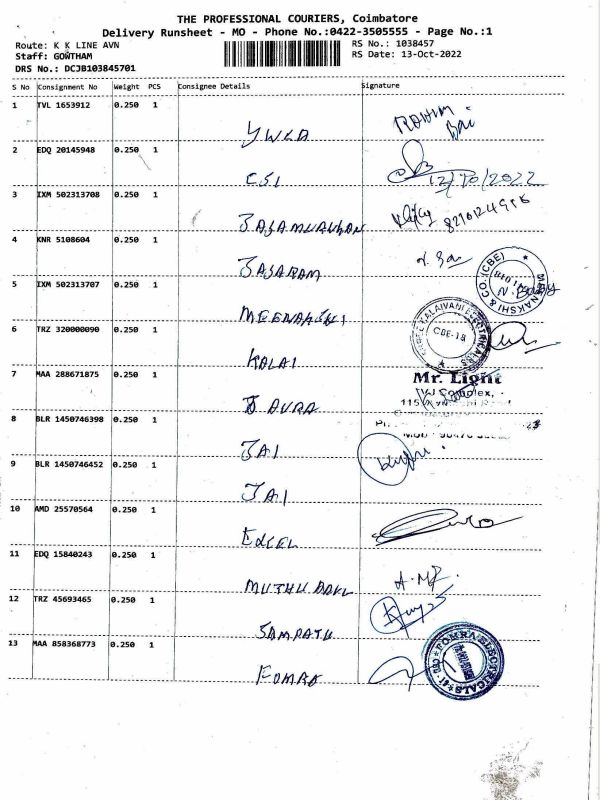 THE PROFESSIONAL COURIERS, Coimbatore
Delivery Runsheet - MO - Phone No.:0422-3505555 - Page No.:1
Route: K K LINE AVN
RS No.: 1038457
Staff: GOWTHAM
RS Date: 13-Oct-2022
DRS No.: DCJB103845701
S No Consignment No Weight PCS Consignee Details Signature
1 TVL 1653912 0.250 1
YWCA
2 EDQ 20145948 0.250 1
CSI
12/10/2022
3 IXM 502313708 0.250 1
4 KNR 5108604 0.250 1
JAJARAM
5 IXM 502313707 0.250 1
MEENAKSHI
NAKSHI & CO. (CBE)
6 TRZ 320000090 0.250 1
KALAI
KALAIVANI ELECTRICALS
CBE-18
7 MAA 288671875 0.250 1
Mr. Light
VJ Complex,
8 BLR 1450746398 0.250 1
JAI
9 BLR 1450746452 0.250 1
JAI
10 AMD 25570564 0.250 1
EXCEL
11 EDQ 15840243 0.250 1
12 TRZ 45693465 0.250 1
SAMPATH
13 MAA 858368773 0.250 1
FOMRA
FOMRA ELECTRICALS